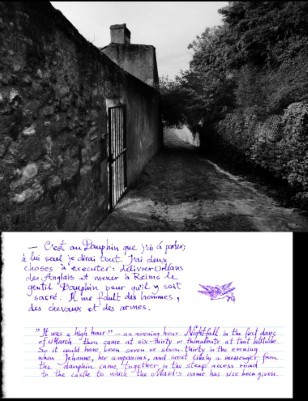 — C'est au Dauphin que j'ai à parler;
à lui seul je dirai tout. J'ai deux
choses à exécuter: délivrer Orléans
des Anglais et mener à Reims le
gentil Dauphin pour qu'il y soit
sacré. Il me faut des hommes,
des chevaux et des armes.
"It was a high hour" — an evening hour. Nightfall in the first days
of March then came at six-thirty or thereabouts at that latitude.
So it could have been seven or seven-thirty in the evening
when Jehanne, her companions, and most likely a messenger from
the Dauphin came together in the steep access road
to the castle to which the name has since been given.